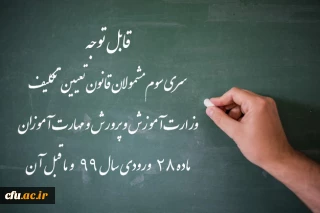 قابل توجه
سری سوم مشمولان قانون تعیین تکلیف
وزارت آموزش و پرورش و مهارت آموزان
ماده ۲۸ ورودی سال ۹۹ و ماقبل آن
cfu.ac.ir